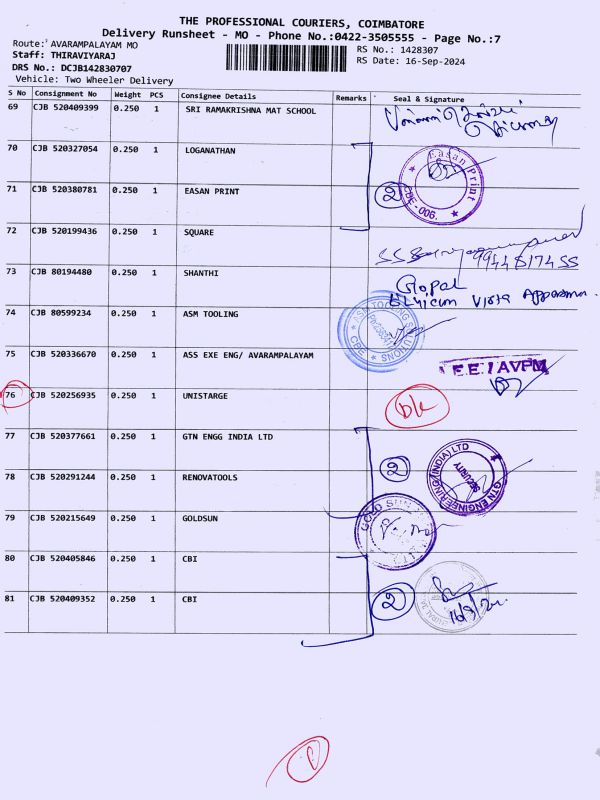 THE PROFESSIONAL COURIERS, COIMBATORE
Delivery Runsheet - MO - Phone No.:0422-3505555 - Page No.:7
Route: AVARAMPALAYAM MO
Staff: THIRAVIYARAJ
DRS No.: DCJB142830707
Vehicle: Two Wheeler Delivery
RS No.: 1428307
RS Date: 16-Sep-2024
S No Consignment No Weight PCS Consignee Details Remarks Seal & Signature
69 CJB 520409399 0.250 1 SRI RAMAKRISHNA MAT SCHOOL
70 CJB 520327054 0.250 1 LOGANATHAN
71 CJB 520380781 0.250 1 EASAN PRINT 2 Easan Print CBE-006.
72 CJB 520199436 0.250 1 SQUARE
73 CJB 80194480 0.250 1 SHANTHI Gopal
74 CJB 80599234 0.250 1 ASM TOOLING CBE
75 CJB 520336670 0.250 1 ASS EXE ENG/ AVARAMPALAYAM E.E./AVPM
76 CJB 520256935 0.250 1 UNISTARGE D/L
77 CJB 520377661 0.250 1 GTN ENGG INDIA LTD 2 GTN ENGINEERING (INDIA) LTD SECURITY
78 CJB 520291244 0.250 1 RENOVATOOLS
79 CJB 520215649 0.250 1 GOLDSUN GOLD SUN
80 CJB 520405846 0.250 1 CBI
81 CJB 520409352 0.250 1 CBI 2